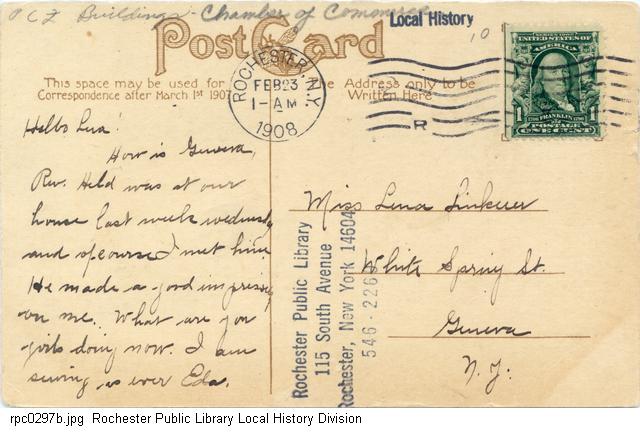 P C Z Buildings - Chamber of Commerce
Local History
10
Post Card
This space may be used for
Correspondence after March 1st 1907
The Address only to be
Written Here
ROCHESTER, N.Y.
FEB 23
1-AM
1908
R
SERIES 1902
UNITED STATES OF
AMERICA
1706 FRANKLIN 1790
POSTAGE
1 ONE CENT 1
Hello Lena!
How is Geneva,
Rev. Held was at our
house last week wednesday
and of course I met him
He made a good impression
on me. What are you
girls doing now. I am
sewing as ever Eda.
Miss Lena
White Spring St.
Geneva
N.Y.
Rochester Public Library
115 South Avenue
Rochester, New York 14604
546-226
rpc0297b.jpg Rochester Public Library Local History Division